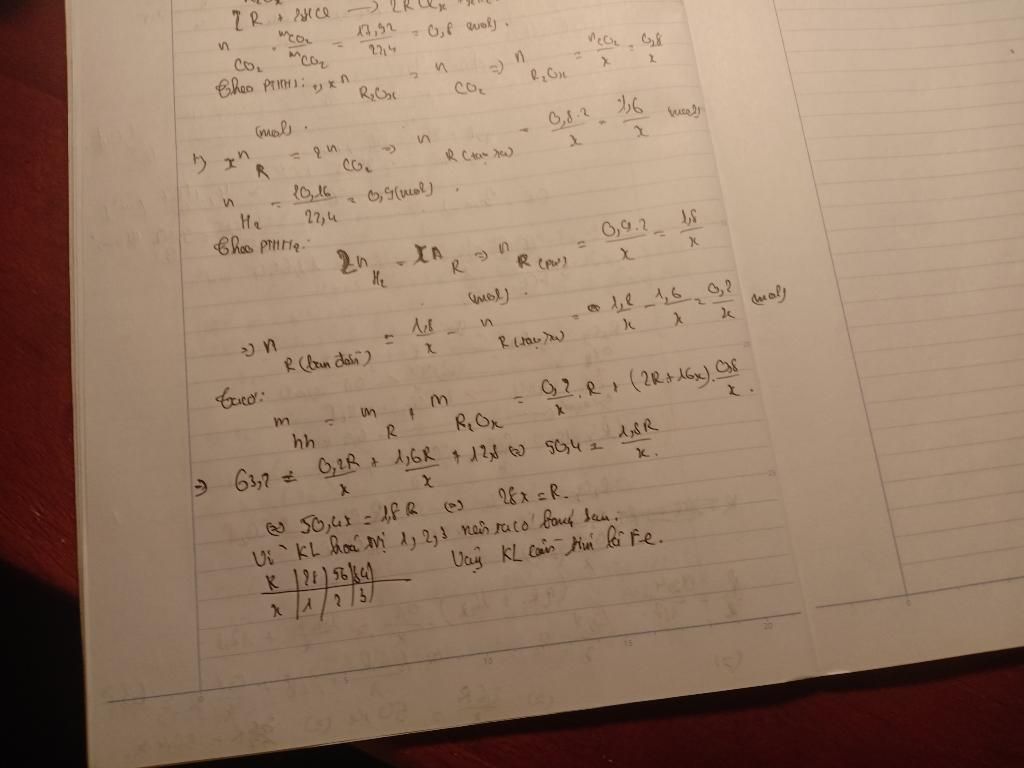 2R + 2xHCl → 2RClx
n CO2 = mCO2/mCO2 = 17,92/22,4 = 0,8 mol).
Theo PTHH1: → x n R2Ox = n CO2 => n R2Ox = nCO2/x = 0,8/x
(mol).
+) x n R = 2 n CO2 => n R(tạo ra) = 0,8.2/x = 1,6/x mol)
n H2 = 20,16/22,4 = 0,9(mol).
Theo PTHH2:
2n H2 = x n R => n R(pư) = 0,9.2/x = 1,8/x
(mol).
=> n R(ban đầu) = 1,8/x - n R(tạo ra) = 1,8/x - 1,6/x = 0,2/x (mol)
Ta có:
m hh = m R + m R2Ox = 0,2/x . R + (2R + 16x). 0,8/x.
=> 63,2 = 0,2R/x + 1,6R/x + 12,8 <=> 50,4 = 1,8R/x.
<=> 50,4x = 1,8R <=> 28x = R.
Vì KL hoá trị 1, 2, 3 nên ta có bảng sau:
R | 28 | 56 | 84
x | 1 | 2 | 3
Vậy KL cần tìm là Fe.